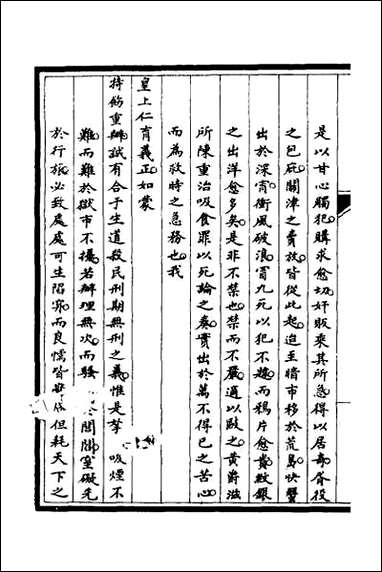 是以甘心觸犯購求愈切奸販乘其所急得以居奇胥役
之包庇關津之賣放皆從此起迨至暗市移於荒島快蟹
出於深宵衝風破浪冒九死以犯不韙而鴉片愈貴紋銀
之出洋愈多矣是非不禁也禁而不嚴適以敺之黃爵滋
所陳重治吸食罪以死論之奏實出於萬不得已之苦心
而為救時之急務也我
皇上仁育義正如蒙
持飭重辦試有合于生道殺民刑期無刑之義惟是拏 吸煙不
難而難於獄市不擾若辦理無次而騷 閭閻窒礙先
於行旅必致處處可生陷穽而良懦皆 但耗天下之